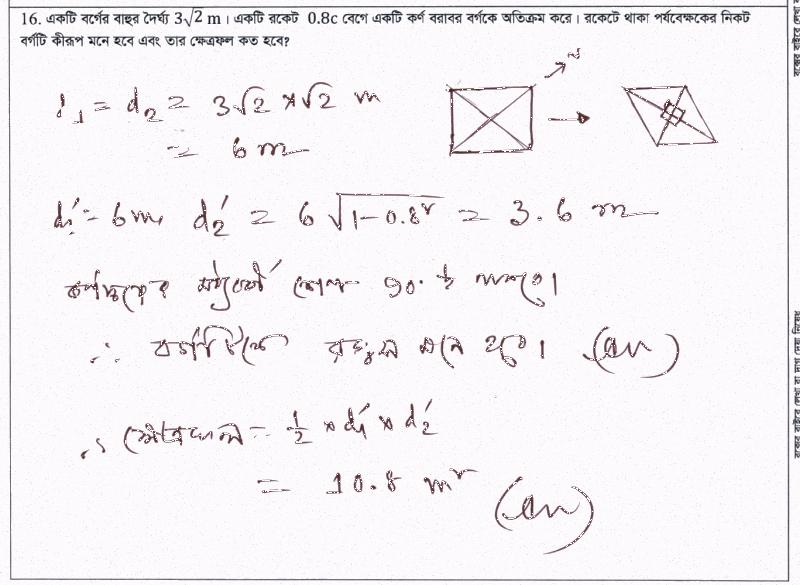 16. একটি বর্গের বাহুর দৈর্ঘ্য 3√2 m। একটি রকেট 0.8c বেগে একটি কর্ণ বরাবর বর্গকে অতিক্রম করে। রকেটে থাকা পর্যবেক্ষকের নিকট
বর্গটি কীরূপ মনে হবে এবং তার ক্ষেত্রফল কত হবে?
d₁ = d₂ = 3√2 × √2 m
= 6 m
d₁′ = 6m, d₂′ = 6 √(1-0.8²) = 3.6 m
কর্ণদ্বয়ের মধ্যবর্তী কোণ 90°
∴ বর্গটিকে রম্বস মনে হবে। (Ans)
∴ ক্ষেত্রফল = ½ × d₁′ × d₂′
= 10.8 m² (Ans)